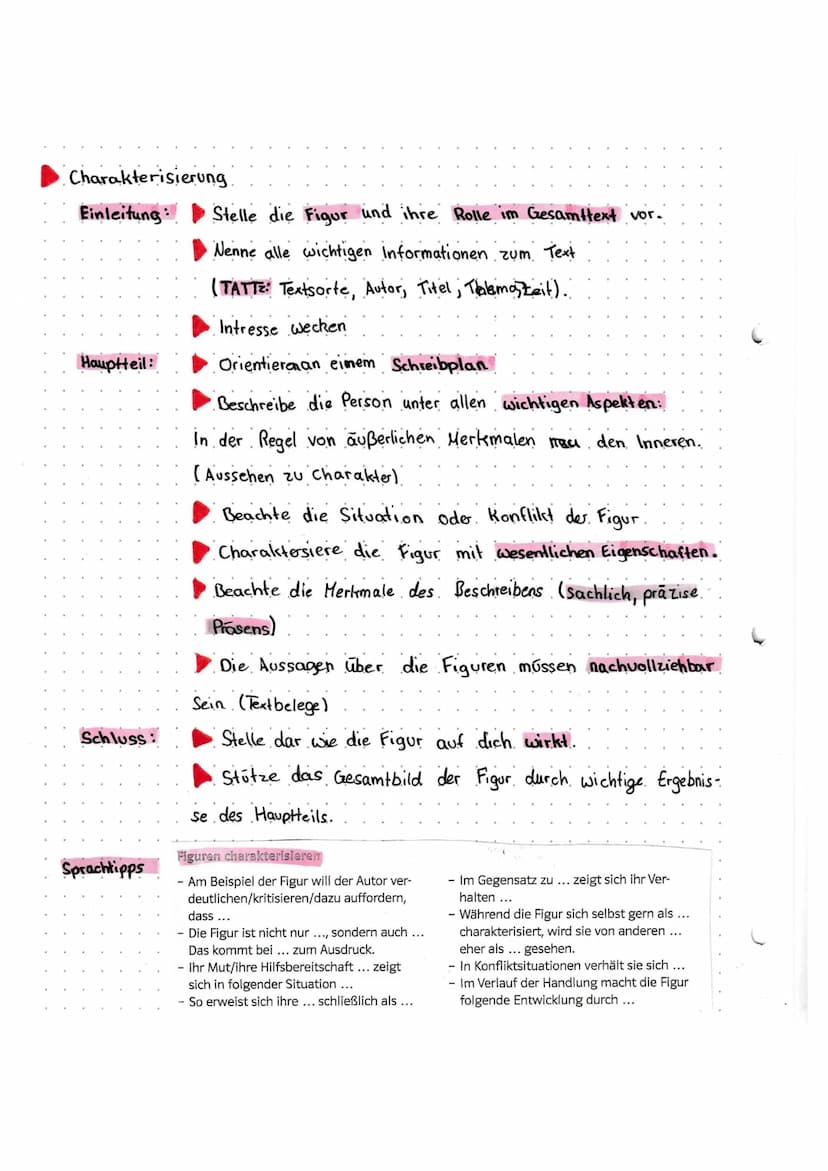 Charakterisierung
Einleitung: Stelle die Figur und ihre Rolle im Gesamttext vor.
Nenne alle wichtigen Informationen zum Text
(TATTZ: Textsorte, Autor, Titel, Thema, Zeit).
Intresse wecken
Hauptteil: Orientier an einem Schreibplan
Beschreibe die Person unter allen wichtigen Aspekten:
In der Regel von äußerlichen Merkmalen den Inneren.
(Aussehen zu Charakter)
Beachte die Situation oder Konflikt der Figur
Charaktersiere die Figur mit wesentlichen Eigenschaften.
Beachte die Merkmale des Beschreibens (sachlich, präzise
Präsens)
Die Aussagen über die Figuren müssen nachvollziehbar
Sein (Textbelege)
Schluss: Stelle dar wie die Figur auf dich wirkt.
Stütze das Gesamtbild der Figur durch wichtige Ergebnis-
se des Hauptteils.
Sprachtipps
Figuren charakterisieren
– Am Beispiel der Figur will der Autor ver-
deutlichen/kritisieren/dazu auffordern,
dass ...
– Die Figur ist nicht nur ..., sondern auch ...
Das kommt bei ... zum Ausdruck.
– Ihr Mut/ihre Hilfsbereitschaft ... zeigt
sich in folgender Situation ...
– So erweist sich ihre ... schließlich als ...
– Im Gegensatz zu ... zeigt sich ihr Ver-
halten ...
– Während die Figur sich selbst gern als ...
charakterisiert, wird sie von anderen ...
eher als ... gesehen.
– In Konfliktsituationen verhält sie sich ...
– Im Verlauf der Handlung macht die Figur
folgende Entwicklung durch ...